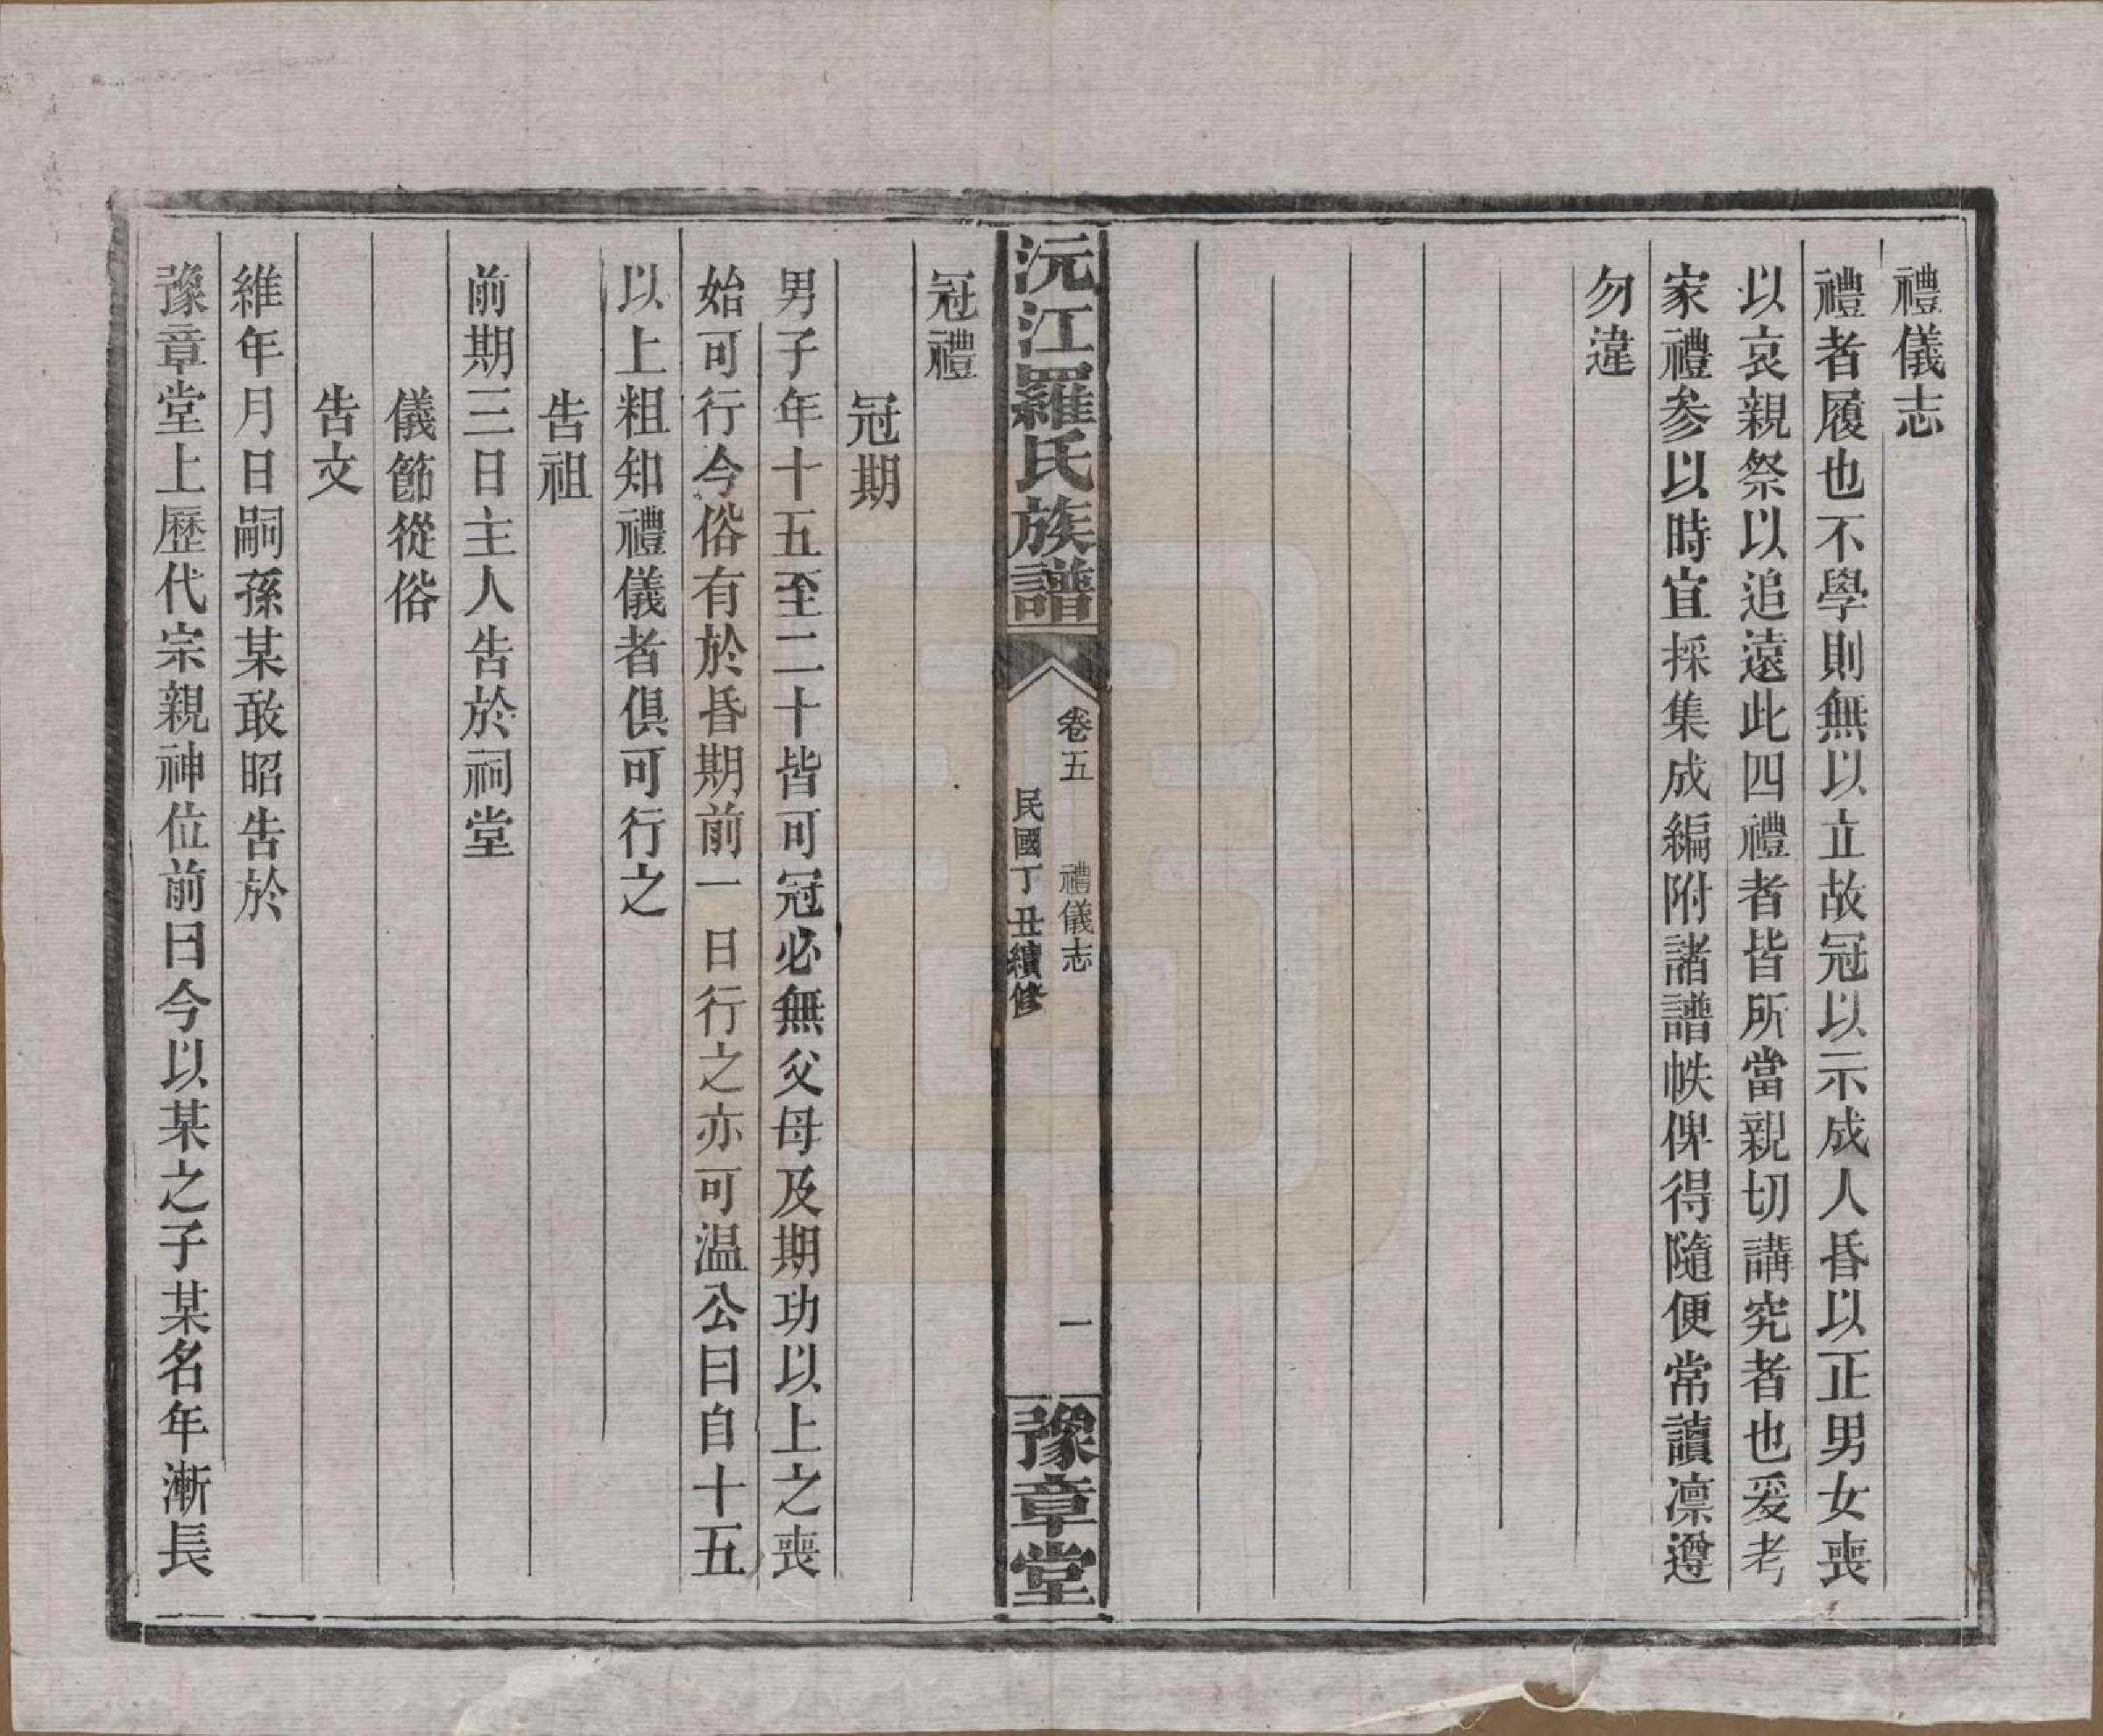 禮儀志
禮者履也不學則無以立故冠以示成人昏以正男女喪
以哀親祭以追遠此四禮者皆所當親切講究者也爰考
家禮參以時宜採集成編附諸譜帙俾得隨便常讀凜遵
勿違
沅江羅氏族譜
卷五
禮儀志
民國丁丑續修
一
豫章堂
冠禮
冠期
男子年十五至二十皆可冠必無父母及期功以上之喪
始可行今俗有於昏期前一日行之亦可温公曰自十五
以上粗知禮儀者俱可行之
告祖
前期三日主人告於祠堂
儀節從俗
告文
維年月日嗣孫某敢昭告於
豫章堂上歷代宗親神位前曰今以某之子某名年漸長